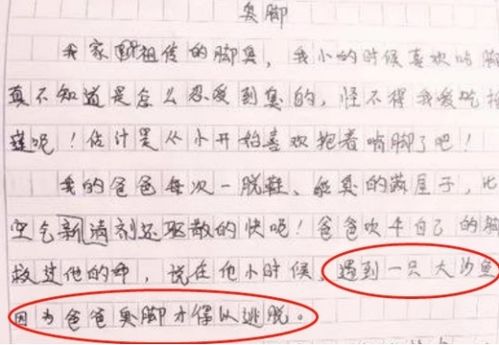 臭脚
我家祖传的脚臭，我小的时候喜欢啃脚
真不知道是怎么忍受到臭的，怪不得我爱吃
呢！估计是从小开始喜欢抱着啃脚了吧！
我的爸爸每次一脱鞋、能臭的满屋子，比
空气新清剂还驱散的快呢！爸爸吹牛自己的脚
救过他的命，说在他小时候，遇到一只大沙鱼
因为爸爸臭脚才得以逃脱。